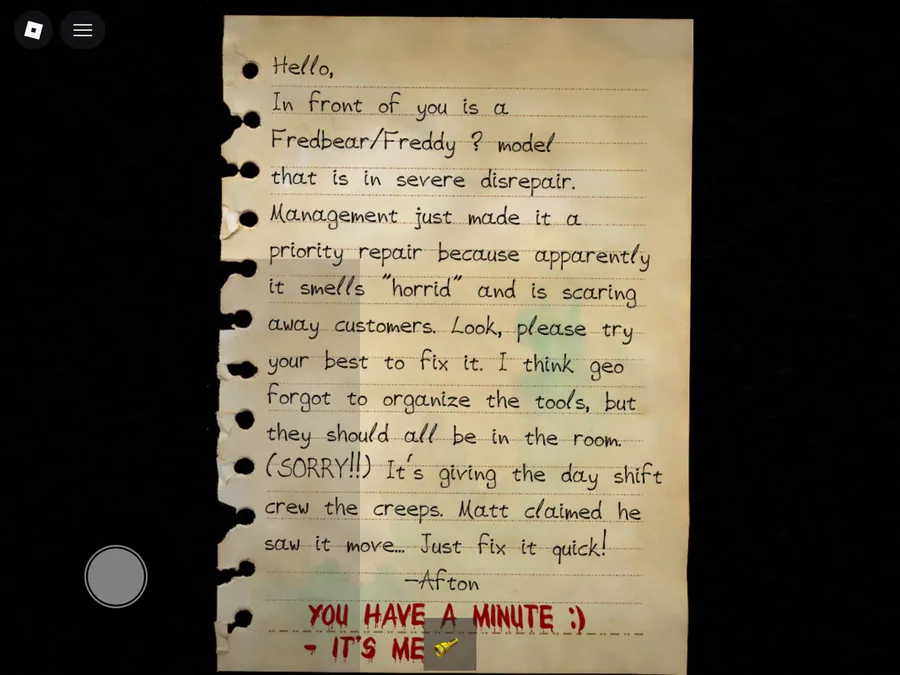 Hello,
In front of you is a
Fredbear/Freddy ? model
that is in severe disrepair.
Management just made it a
priority repair because apparently
it smells "horrid" and is scaring
away customers. Look, please try
your best to fix it. I think geo
forgot to organize the tools, but
they should all be in the room.
(SORRY!!) It's giving the day shift
crew the creeps. Matt claimed he
saw it move... Just fix it quick!
-Afton
YOU HAVE A MINUTE :)
- IT'S ME